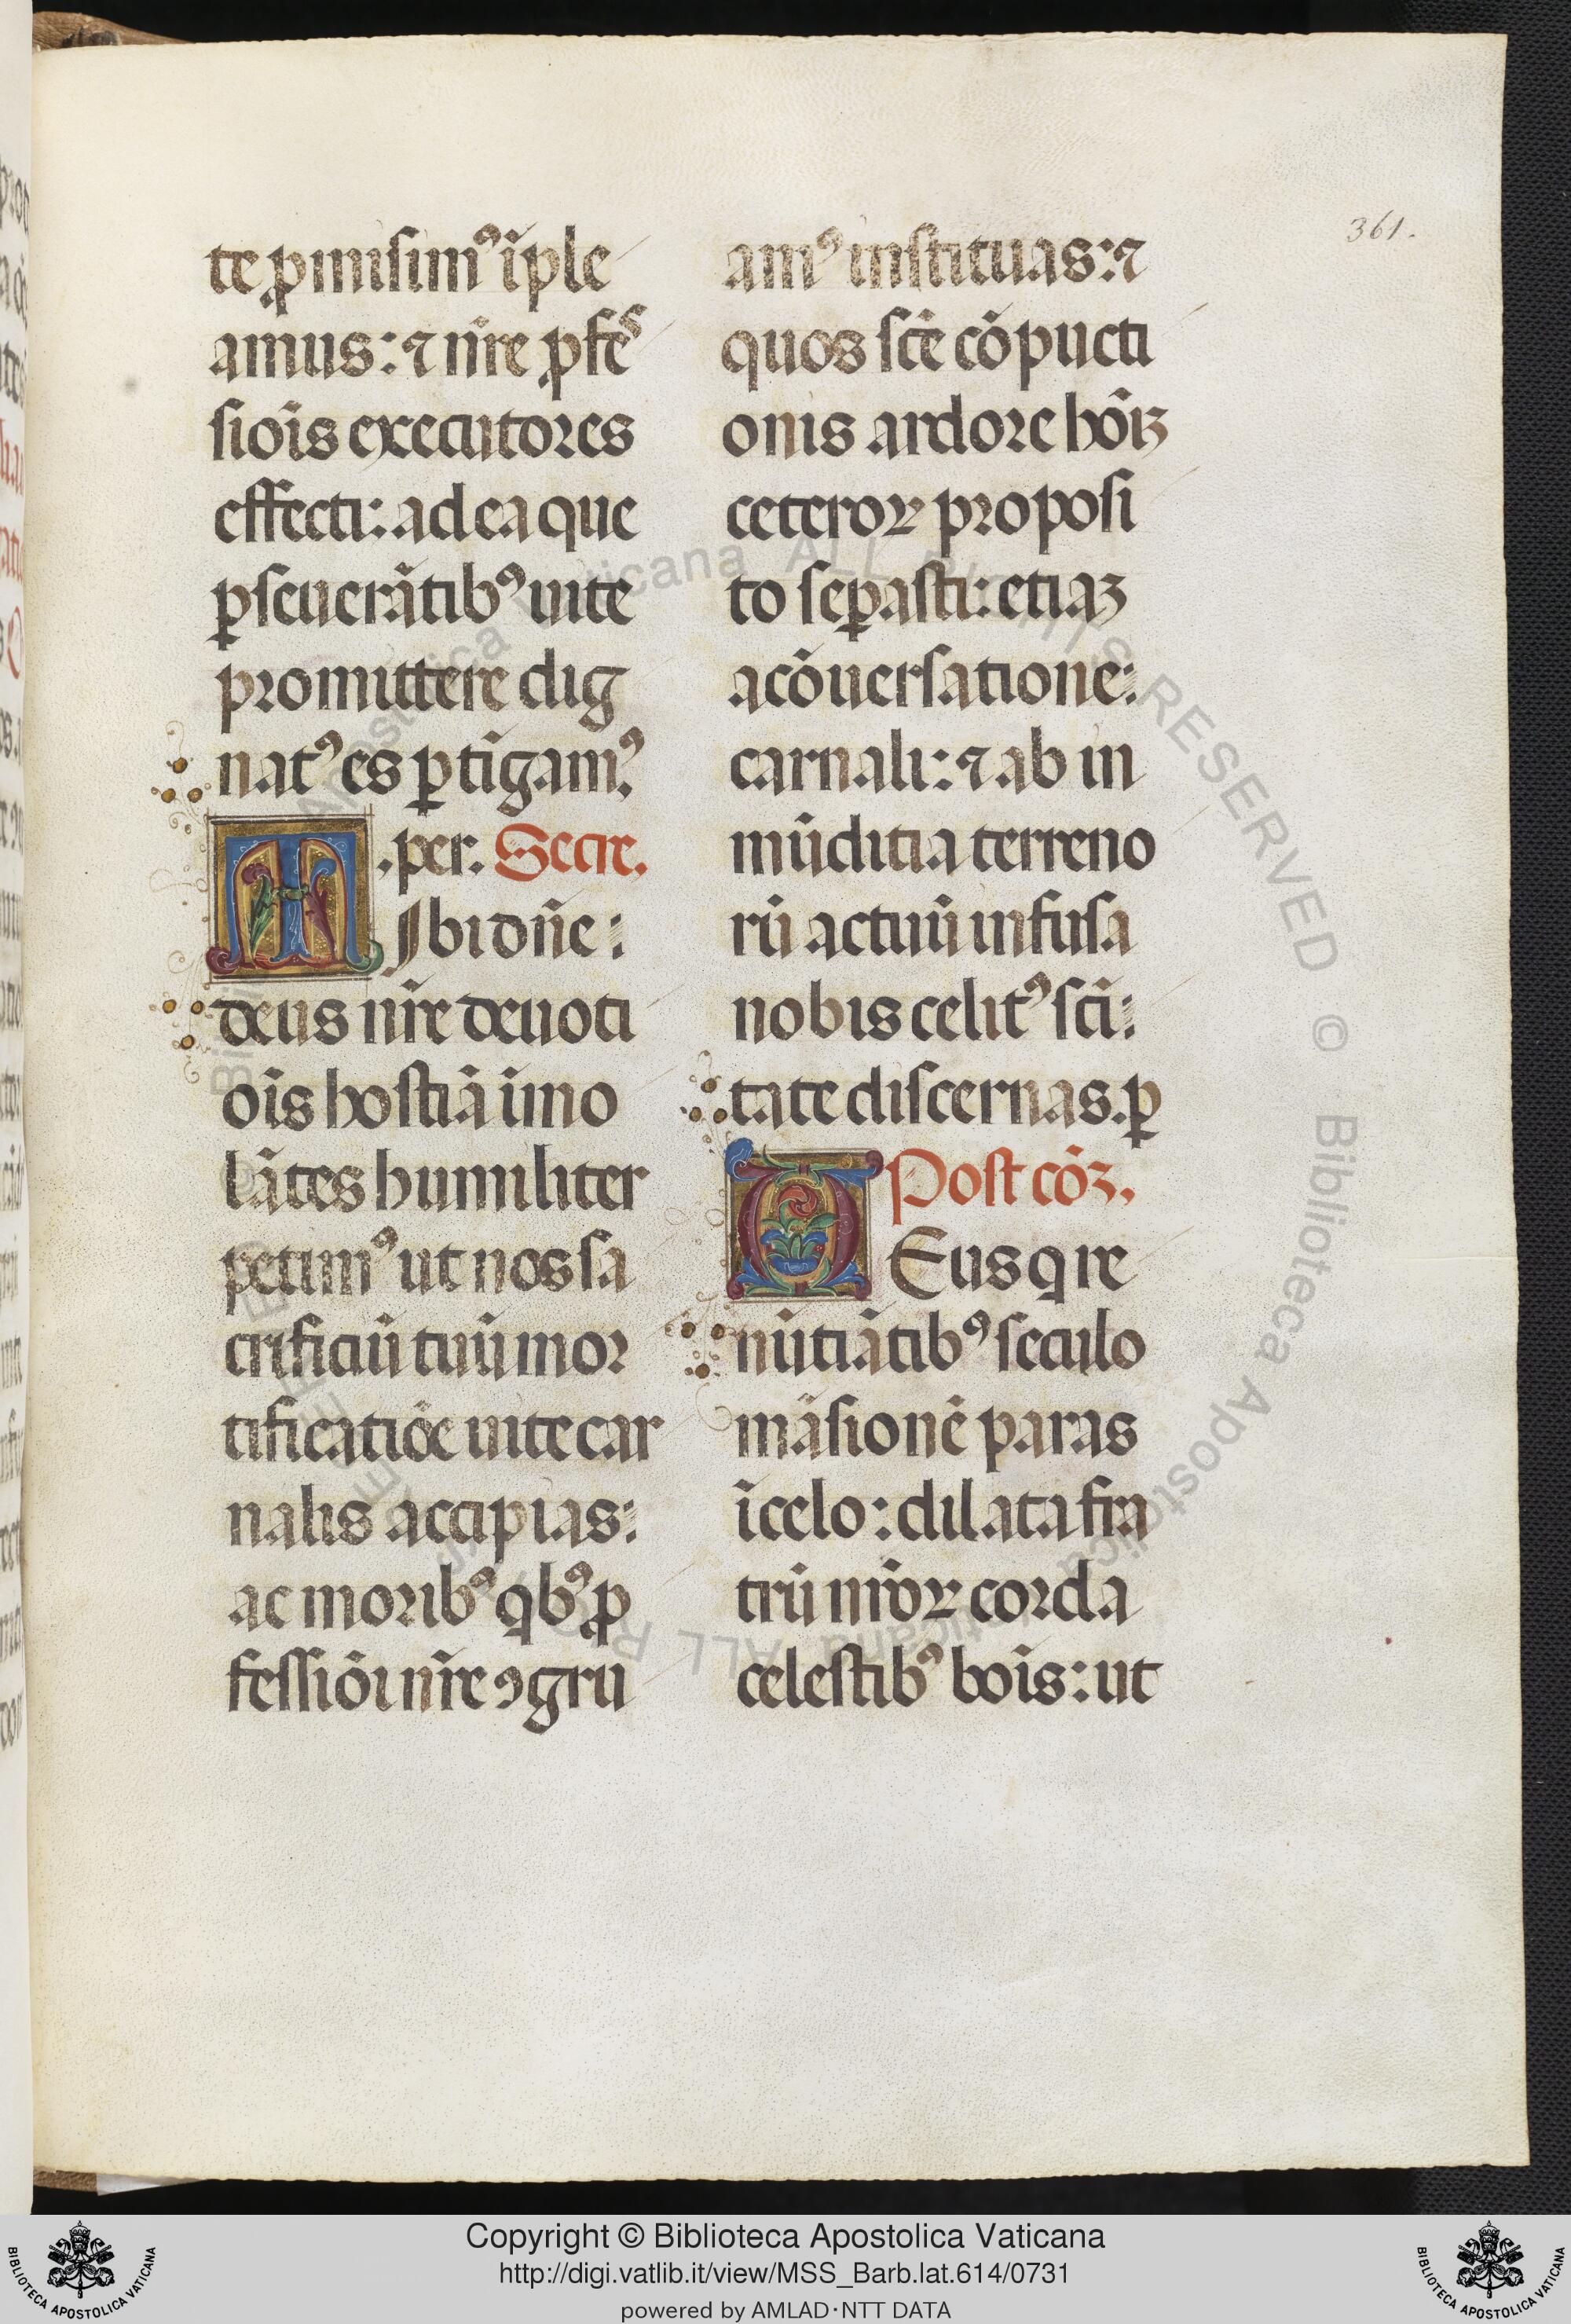 361.
te ꝓmisimꝰ īple
amus: ⁊ nr̄e ꝓfes
sioīs executores
effecti: ad ea que
ꝑseuerātibꝰ uite
promittere dig
natꝰ es ꝑtīgamꝰ.
.per. Secre.
TIbi dn̄e:
deus nr̄e deuoti
oīs hostiā īmo
lātes humiliter
petimꝰ ut nos sa
crificiū tuū mor
tificatiōe uite car
nalis accipias:
ac moribꝰ qbꝰ ꝓ
fessiōi nr̄e ꝯgru
amꝰ instituas: ⁊
quos scē cōpucti
onis ardore hoīꝫ
ceteroꝝ proposi
to seꝑasti: etiaꝫ
a cōuersatione:
carnali: ⁊ ab in
mūditia terreno
rū actuū infusa
nobis celitꝰ scī:
tate discernas. ꝑ
Post cōꝫ.
DEus q re
nūtiātibꝰ seculo
māsionē paras
ī celo: dilata fra
trū nr̄oꝝ corda
celestibꝰ boīs: ut
Copyright © Biblioteca Apostolica Vaticana
http://digi.vatlib.it/view/MSS_Barb.lat.614/0731
powered by AMLAD·NTT DATA
BIBLIOTECA APOSTOLICA VATICANA
BIBLIOTECA APOSTOLICA VATICANA